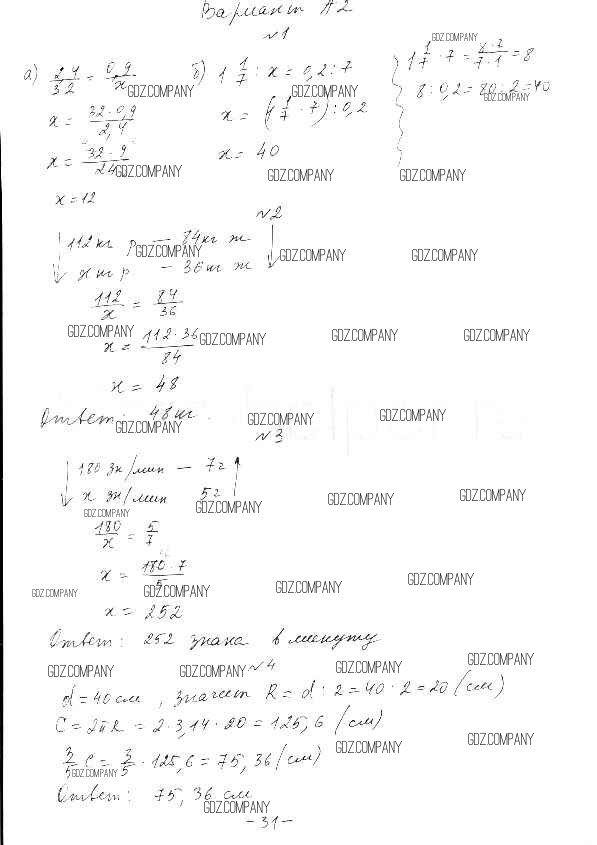 Вариант А2
№1
а) 2,4/3,2 = 0,9/x  б) 1 1/7 : x = 0,2 : 7  1 1/7 · 7 = 8·7/7·1 = 8
x = 32·0,9/2,4  x = (1 1/7 · 7) : 0,2  8 : 0,2 = 80 : 2 = 40
x = 32·9/24  x = 40
x = 12
№2
112 кг р — 84 кг ж
x кг р — 36 кг ж
112/x = 84/36
x = 112·36/84
x = 48
Ответ: 48 кг.
№3
180 зн/мин — 7 г
x зн/мин 5 г
180/x = 5/7
x = 180·7/5
x = 252
Ответ: 252 знака в минуту
№4
d = 40 см, значит R = d : 2 = 40 · 2 = 20 (см)
C = 2πR = 2·3,14·20 = 125,6 (см)
3/5 C = 3/5 · 125,6 = 75,36 (см)
Ответ: 75,36 см
GDZ.COMPANY
- 31 -